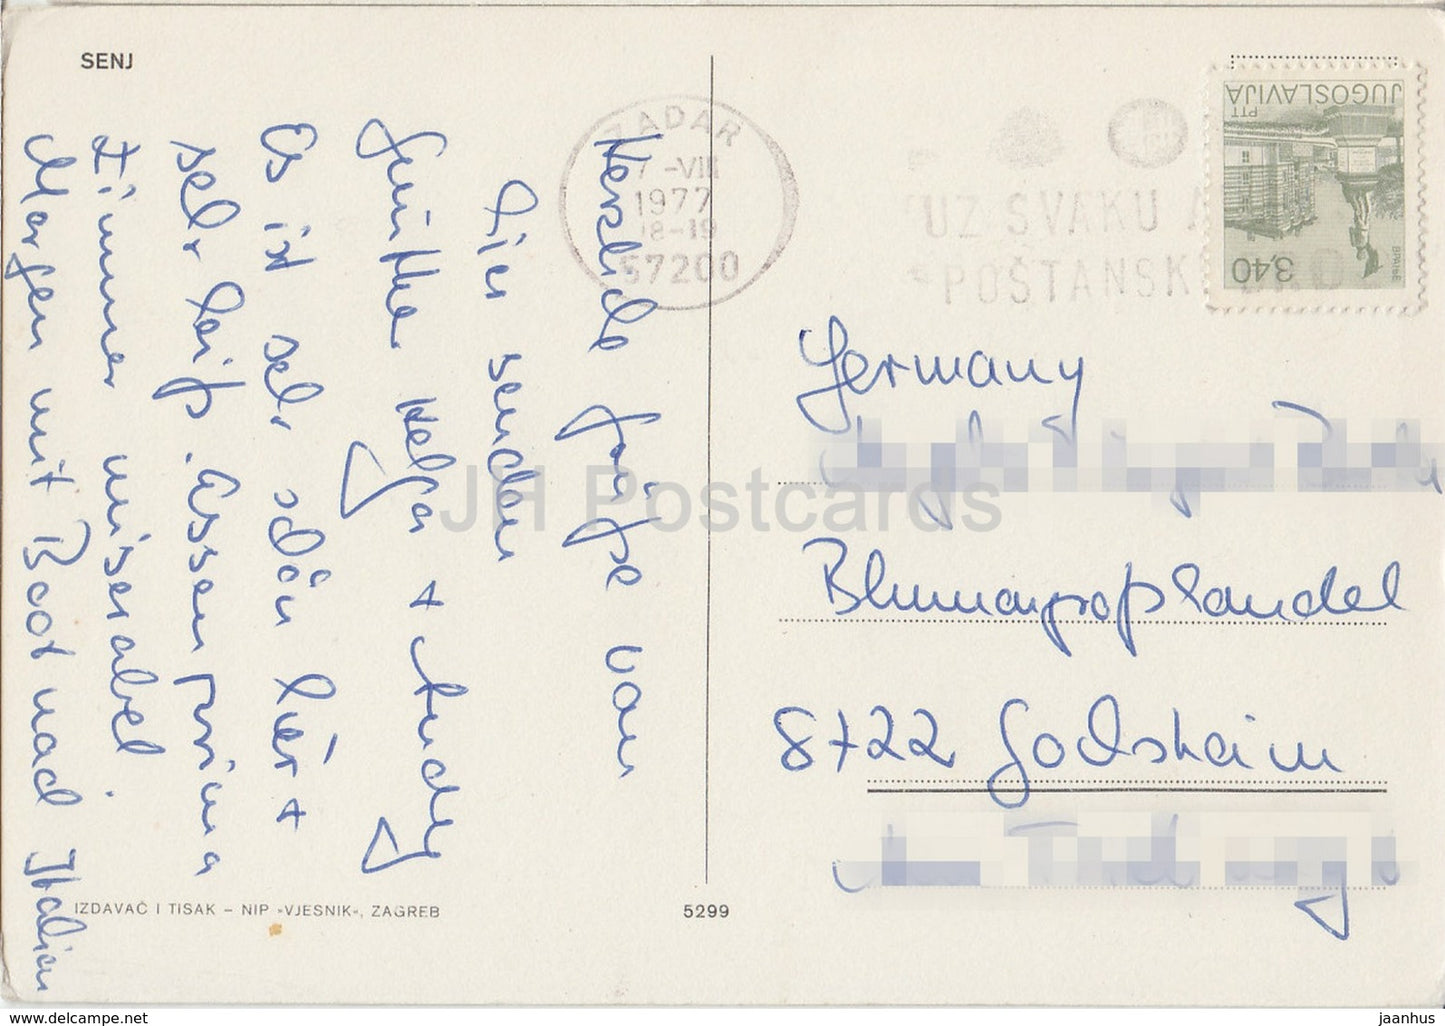 SENJ
Herzliche Grüße von
hier senden
Günther Helga + Andy
Es ist sehr schön hier +
sehr heiß. Essen prima
Zimmer miserabel.
Morgen mit Boot nach Italien
ZADAR
7-VIII
1977
18-19
57200
UZ SVAKU A
POŠTANSK
JUGOSLAVIJA
PTT
3,40
Germany
Blumengroßhandel
8722 Gochsheim
IZDAVAČ I TISAK – NIP »VJESNIK«, ZAGREB
5299
JH Postcards
www.delcampe.net
jaanhus